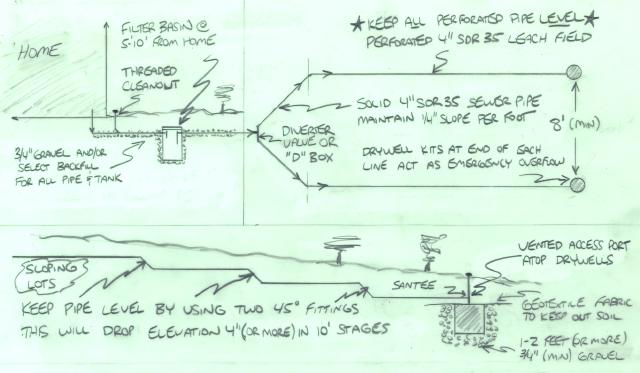 HOME
FILTER BASIN @
5-10' FROM HOME
THREADED
CLEANOUT
3/4" GRAVEL AND/OR
SELECT BACKFILL
FOR ALL PIPE & TANK
★KEEP ALL PERFORATED PIPE LEVEL★
PERFORATED 4" SDR 35 LEACH FIELD
SOLID 4" SDR 35 SEWER PIPE
MAINTAIN 1/4" SLOPE PER FOOT
DIVERTER
VALVE OR
"D" BOX
8' (MIN)
DRYWELL KITS AT END OF EACH
LINE ACT AS EMERGENCY OVERFLOW
SLOPING
LOTS
KEEP PIPE LEVEL BY USING TWO 45° FITTINGS
THIS WILL DROP ELEVATION 4" (OR MORE) IN 10' STAGES
SANTEE
VENTED ACCESS PORT
ATOP DRYWELLS
GEOTEXTILE FABRIC
TO KEEP OUT SOIL
1-2 FEET (OR MORE)
3/4" (MIN) GRAVEL